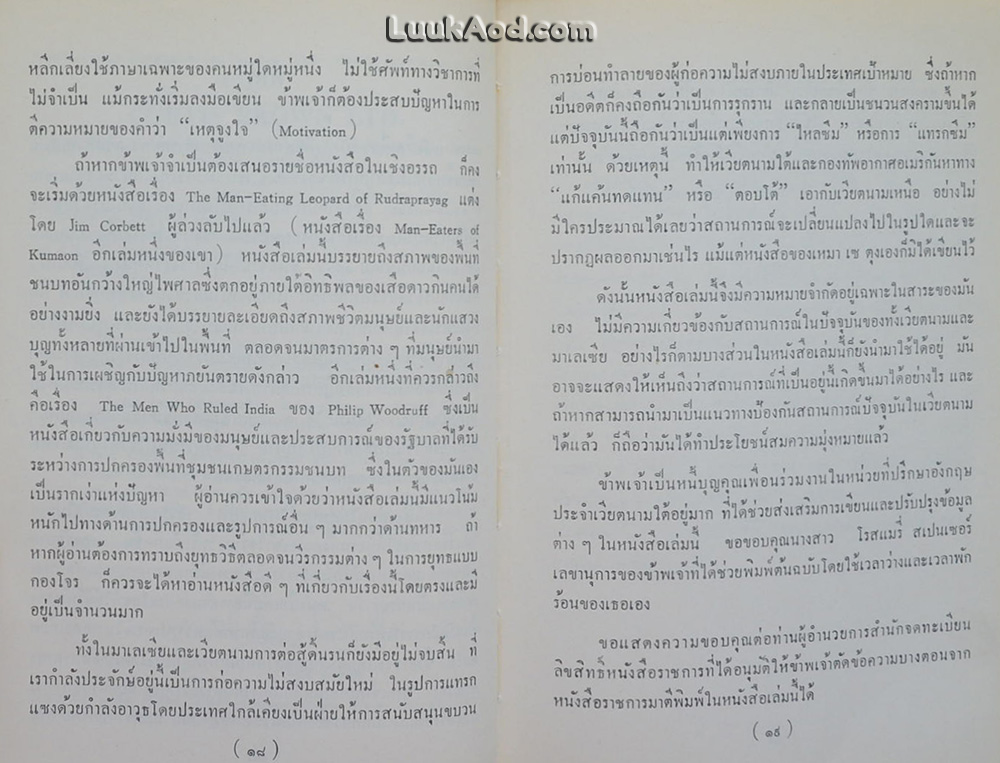 LuukAod.com
หลีกเลี่ยงใช้ภาษาเฉพาะของคนหมู่ใดหมู่หนึ่ง ไม่ใช้ศัพท์ทางวิชาการที่
ไม่จำเป็น แม้กระทั่งเริ่มลงมือเขียน ข้าพเจ้าก็ต้องประสบปัญหาในการ
ตีความหมายของคำว่า “เหตุจูงใจ” (Motivation)
ถ้าหากข้าพเจ้าจำเป็นต้องเสนอรายชื่อหนังสือในเชิงอรรถ ก็คง
จะเริ่มด้วยหนังสือเรื่อง The Man-Eating Leopard of Rudraprayag แต่ง
โดย Jim Corbett ผู้ล่วงลับไปแล้ว (หนังสือเรื่อง Man-Eaters of
Kumaon อีกเล่มหนึ่งของเขา) หนังสือเล่มนี้บรรยายถึงสภาพของพื้นที่
ชนบทอันกว้างใหญ่ไพศาลซึ่งตกอยู่ภายใต้อิทธิพลของเสือดาวกินคนได้
อย่างงามยิ่ง และยังได้บรรยายละเอียดถึงสภาพชีวิตมนุษย์และนักแสวง
บุญทั้งหลายที่ผ่านเข้าไปในพื้นที่ ตลอดจนมาตรการต่าง ๆ ที่มนุษย์นำมา
ใช้ในการเผชิญกับปัญหาภยันตรายดังกล่าว อีกเล่มหนึ่งที่ควรกล่าวถึง
คือเรื่อง The Men Who Ruled India ของ Philip Woodruff ซึ่งเป็น
หนังสือเกี่ยวกับความมั่งมีของมนุษย์และประสบการณ์ของรัฐบาลที่ได้รับ
ระหว่างการปกครองพื้นที่ชุมชนเกษตรกรรมชนบท ซึ่งในตัวของมันเอง
เป็นรากเง่าแห่งปัญหา ผู้อ่านควรเข้าใจด้วยว่าหนังสือเล่มนี้มีแนวโน้ม
หนักไปทางด้านการปกครองและรูปการณ์อื่น ๆ มากกว่าด้านทหาร ถ้า
หากผู้อ่านต้องการทราบถึงยุทธวิธีตลอดจนวีรกรรมต่าง ๆ ในการยุทธแบบ
กองโจร ก็ควรจะได้หาอ่านหนังสือดี ๆ ที่เกี่ยวกับเรื่องนี้โดยตรงและมี
อยู่เป็นจำนวนมาก
ทั้งในมาเลเซียและเวียตนามการต่อสู้ดิ้นรนก็ยังมีอยู่ไม่จบสิ้น ที่
เรากำลังประจักษ์อยู่นี้เป็นการก่อความไม่สงบสมัยใหม่ ในรูปการแทรก
แซงด้วยกำลังอาวุธโดยประเทศใกล้เคียงเป็นฝ่ายให้การสนับสนุนขบวน
(๑๘)
การบ่อนทำลายของผู้ก่อความไม่สงบภายในประเทศเป้าหมาย ซึ่งถ้าหาก
เป็นอดีตก็คงถือกันว่าเป็นการรุกราน และกลายเป็นชนวนสงครามขึ้นได้
แต่ปัจจุบันนี้ถือกันว่าเป็นแต่เพียงการ “ไหลซึม” หรือการ “แทรกซึม”
เท่านั้น ด้วยเหตุนี้ ทำให้เวียตนามใต้และกองทัพอากาศอเมริกันหาทาง
“แก้แค้นทดแทน” หรือ “ตอบโต้” เอากับเวียตนามเหนือ อย่างไม่
มีใครประมาณได้เลยว่าสถานการณ์จะเปลี่ยนแปลงไปในรูปใดและจะ
ปรากฏผลออกมาเช่นไร แม้แต่หนังสือของเหมา เซ ตุงเองก็มิได้เขียนไว้
ดังนั้นหนังสือเล่มนี้จึงมีความหมายจำกัดอยู่เฉพาะในสาระของมัน
เอง ไม่มีความเกี่ยวข้องกับสถานการณ์ในปัจจุบันของทั้งเวียตนามและ
มาเลเซีย อย่างไรก็ตามบางส่วนในหนังสือเล่มนี้ก็ยังนำมาใช้ได้อยู่ มัน
อาจจะแสดงให้เห็นถึงว่าสถานการณ์ที่เป็นอยู่นี้เกิดขึ้นมาได้อย่างไร และ
ถ้าหากสามารถนำมาเป็นแนวทางป้องกันสถานการณ์ปัจจุบันในเวียตนาม
ได้แล้ว ก็ถือว่ามันได้ทำประโยชน์สมความมุ่งหมายแล้ว
ข้าพเจ้าเป็นหนี้บุญคุณเพื่อนร่วมงานในหน่วยที่ปรึกษาอังกฤษ
ประจำเวียตนามใต้อยู่มาก ที่ได้ช่วยส่งเสริมการเขียนและปรับปรุงข้อมูล
ต่าง ๆ ในหนังสือเล่มนี้ ขอขอบคุณนางสาว โรสแมรี่ สเปนเซอร์
เลขานุการของข้าพเจ้าที่ได้ช่วยพิมพ์ต้นฉบับโดยใช้เวลาว่างและเวลาพัก
ร้อนของเธอเอง
ขอแสดงความขอบคุณต่อท่านผู้อำนวยการสำนักจดทะเบียน
ลิขสิทธิ์หนังสือราชการที่ได้อนุมัติให้ข้าพเจ้าตัดข้อความบางตอนจาก
หนังสือราชการมาตีพิมพ์ในหนังสือเล่มนี้ได้
(๑๙)